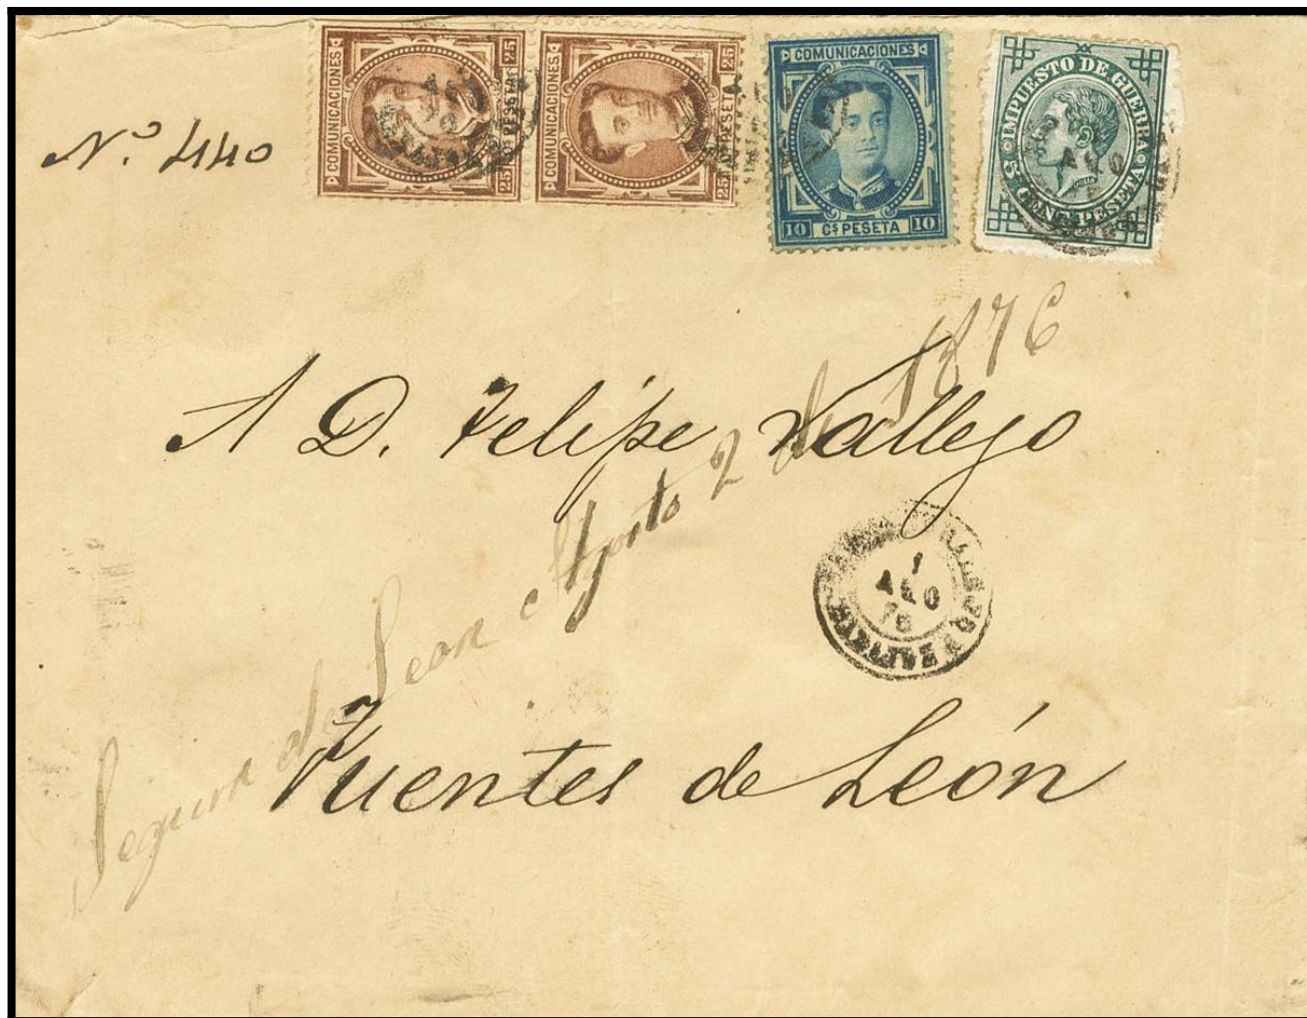 Nº 440
COMUNICACIONES
25 Cs PESETA 25
COMUNICACIONES
25 Cs PESETA 25
COMUNICACIONES
10 Cs PESETA 10
IMPUESTO DE GUERRA
5 CENT. PESETA
A D. Felipe Vallejo
Segura de Leon Agosto 2 de 1876
1
AGO
76
Fuentes de León